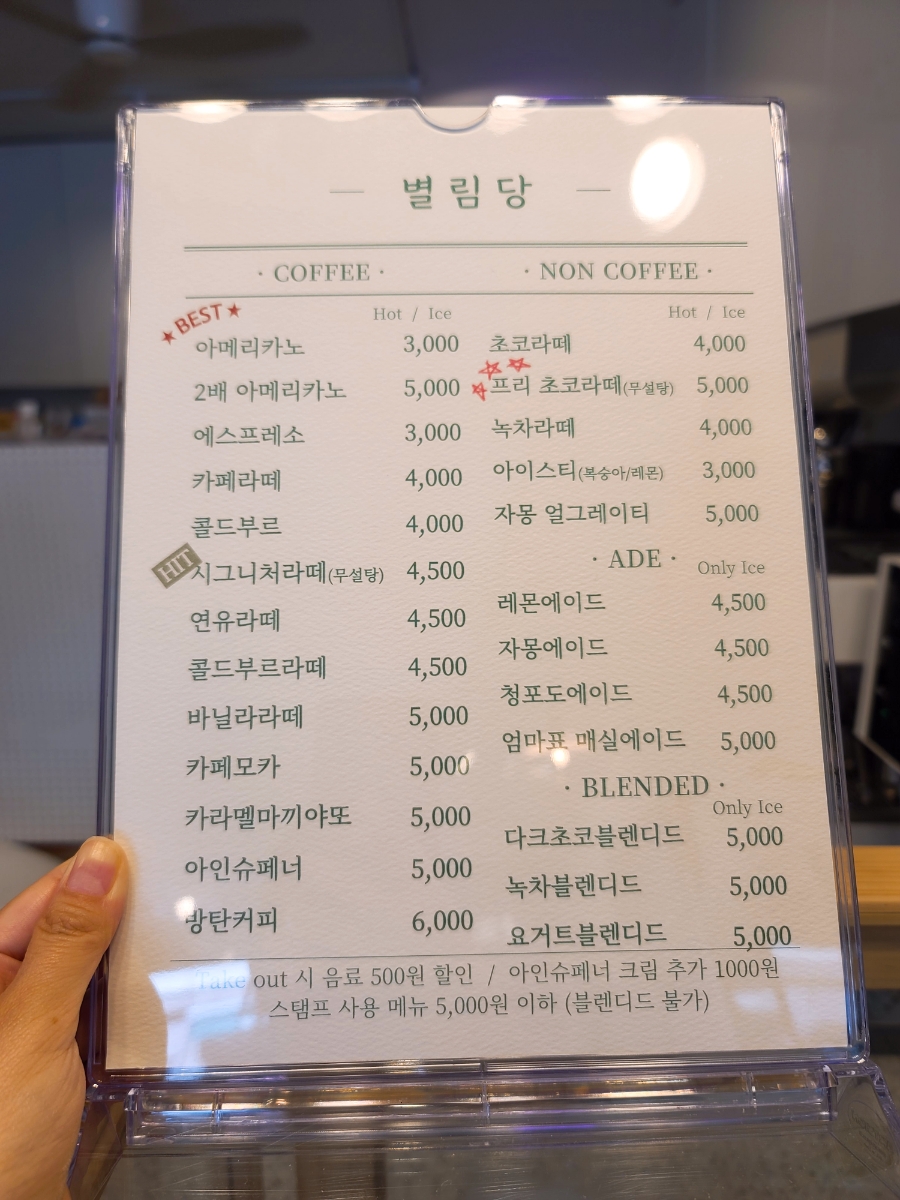 별림당
· COFFEE ·
Hot / Ice
BEST
아메리카노 3,000
2배 아메리카노 5,000
에스프레소 3,000
카페라떼 4,000
콜드부르 4,000
HIT
시그니처라떼(무설탕) 4,500
연유라떼 4,500
콜드부르라떼 4,500
바닐라라떼 5,000
카페모카 5,000
카라멜마끼야또 5,000
아인슈페너 5,000
방탄커피 6,000
· NON COFFEE ·
Hot / Ice
초코라떼 4,000
프리 초코라떼(무설탕) 5,000
녹차라떼 4,000
아이스티(복숭아/레몬) 3,000
자몽 얼그레이티 5,000
· ADE ·
Only Ice
레몬에이드 4,500
자몽에이드 4,500
청포도에이드 4,500
엄마표 매실에이드 5,000
· BLENDED ·
Only Ice
다크초코블렌디드 5,000
녹차블렌디드 5,000
요거트블렌디드 5,000
Take out 시 음료 500원 할인 / 아인슈페너 크림 추가 1000원
스탬프 사용 메뉴 5,000원 이하 (블렌디드 불가)